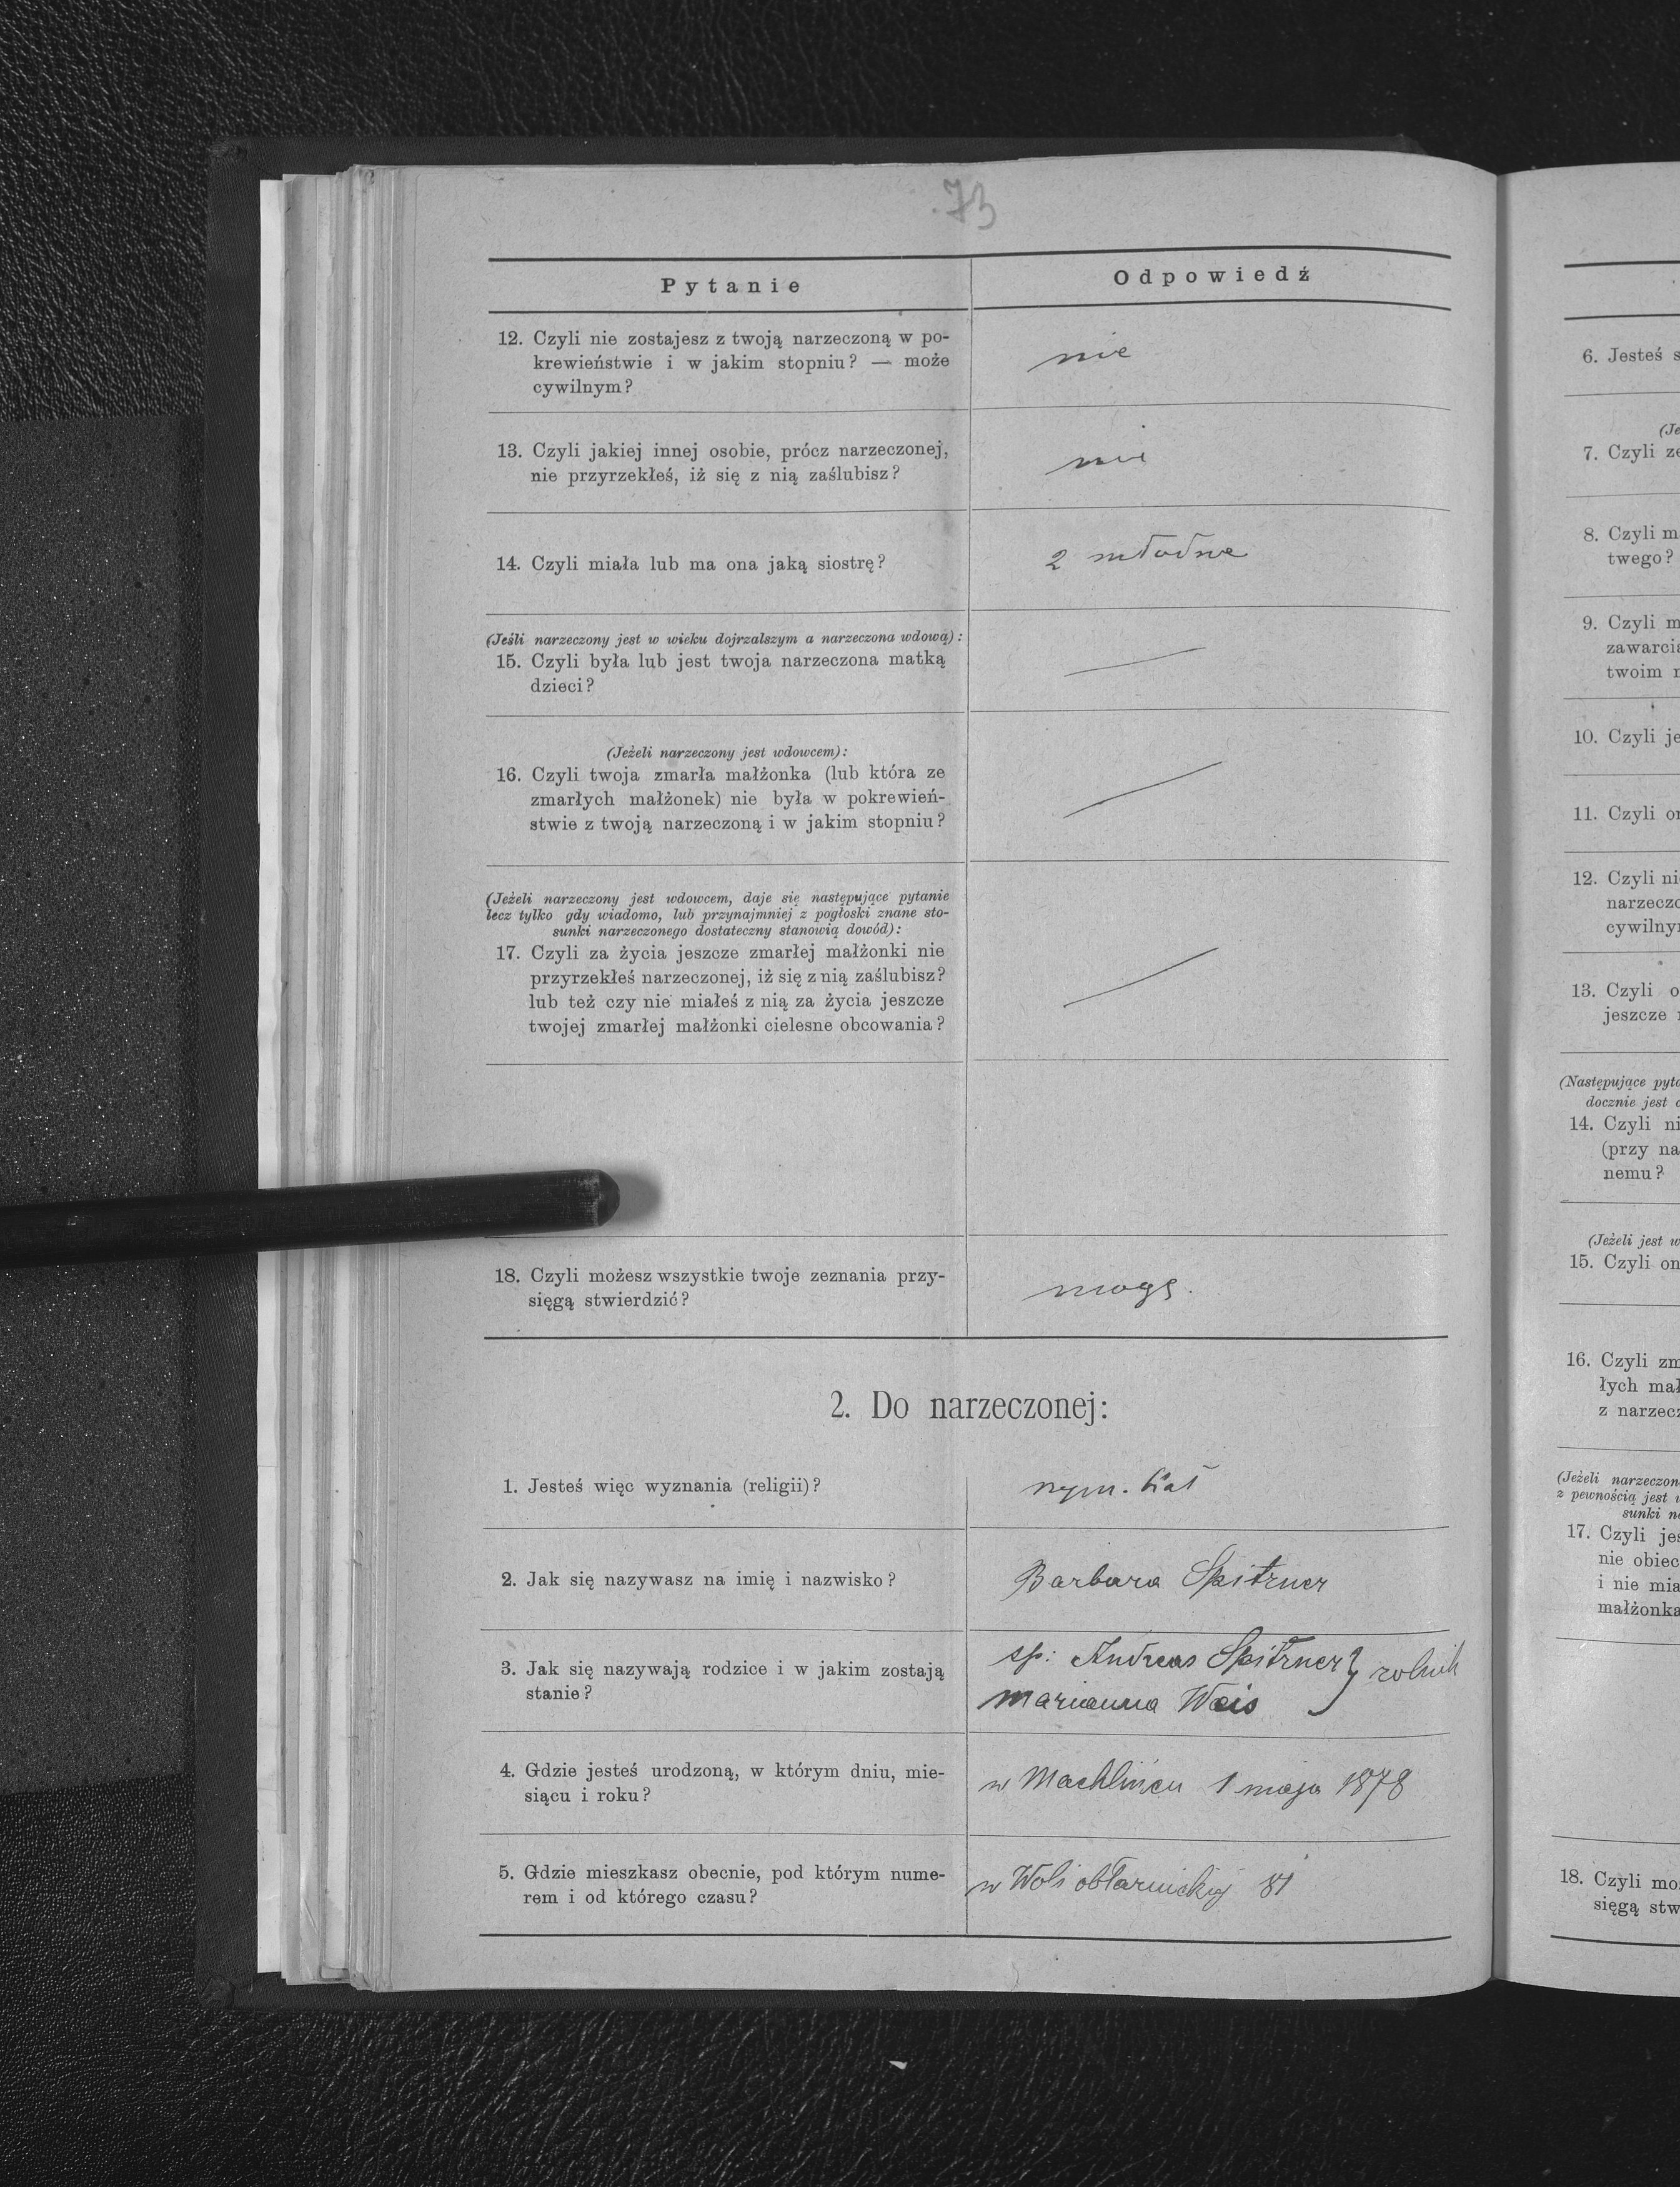 73
Pytanie
Odpowiedź
12. Czyli nie zostajesz z twoją narzeczoną w po-
krewieństwie i w jakim stopniu? — może
cywilnym?
nie
13. Czyli jakiej innej osobie, prócz narzeczonej,
nie przyrzekłeś, iż się z nią zaślubisz?
nie
14. Czyli miała lub ma ona jaką siostrę?
2 młodsze
(Jeśli narzeczony jest w wieku dojrzalszym a narzeczona wdową):
15. Czyli była lub jest twoja narzeczona matką
dzieci?
(Jeżeli narzeczony jest wdowcem):
16. Czyli twoja zmarła małżonka (lub która ze
zmarłych małżonek) nie była w pokrewień-
stwie z twoją narzeczoną i w jakim stopniu?
(Jeżeli narzeczony jest wdowcem, daje się następujące pytanie
lecz tylko gdy wiadomo, lub przynajmniej z pogłoski znane sto-
sunki narzeczonego dostateczny stanowią dowód):
17. Czyli za życia jeszcze zmarłej małżonki nie
przyrzekłeś narzeczonej, iż się z nią zaślubisz?
lub też czy nie miałeś z nią za życia jeszcze
twojej zmarłej małżonki cielesne obcowania?
18. Czyli możesz wszystkie twoje zeznania przy-
sięgą stwierdzić?
mogę.
2. Do narzeczonej:
1. Jesteś więc wyznania (religii)?
rzym. kat
2. Jak się nazywasz na imię i nazwisko?
Barbara Spitzner
3. Jak się nazywają rodzice i w jakim zostają
stanie?
sp: Andreas Spitzner } rolnik
Marianna Weis
4. Gdzie jesteś urodzoną, w którym dniu, mie-
siącu i roku?
w Machlińcu 1 maja 1878
5. Gdzie mieszkasz obecnie, pod którym nume-
rem i od którego czasu?
w Woli obłarnickiej 81
6. Jesteś s
(Je
7. Czyli ze
8. Czyli m
twego?
9. Czyli m
zawarcia
twoim
10. Czyli je
11. Czyli on
12. Czyli ni
narzeczo
cywilny
13. Czyli o
jeszcze
(Następujące pyta
docznie jest
14. Czyli ni
(przy na
nemu?
(Jeżeli jest w
15. Czyli on
16. Czyli zm
łych mał
z narzecz
(Jeżeli narzeczon
z pewnością jest
sunki na
17. Czyli jes
nie obiec
i nie mia
małżonka
18. Czyli mo
sięgą stw